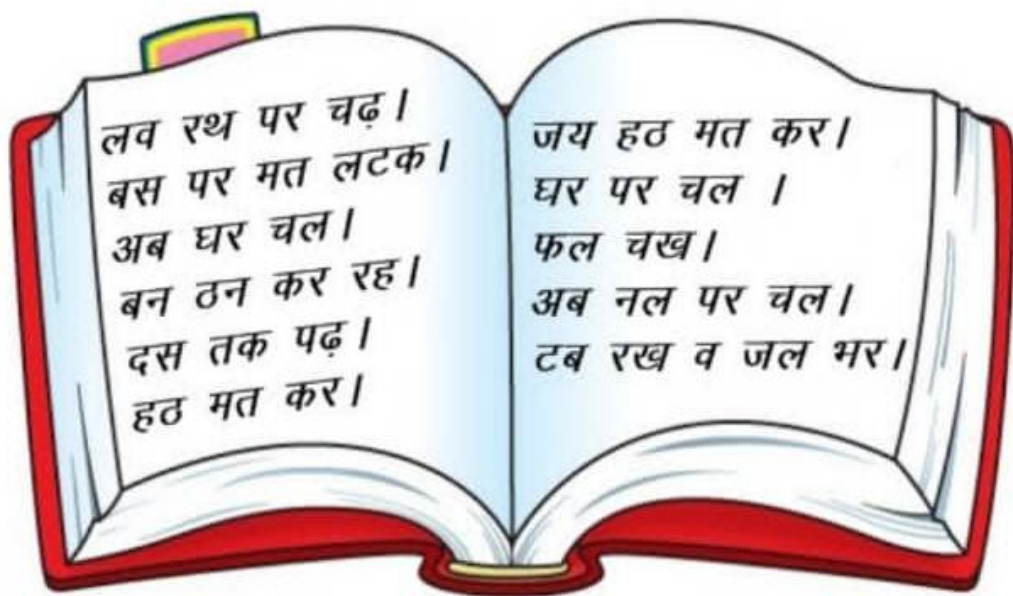 लव रथ पर चढ़।
बस पर मत लटक।
अब घर चल।
बन ठन कर रह।
दस तक पढ़।
हठ मत कर।
जय हठ मत कर।
घर पर चल ।
फल चख।
अब नल पर चल।
टब रख व जल भर।